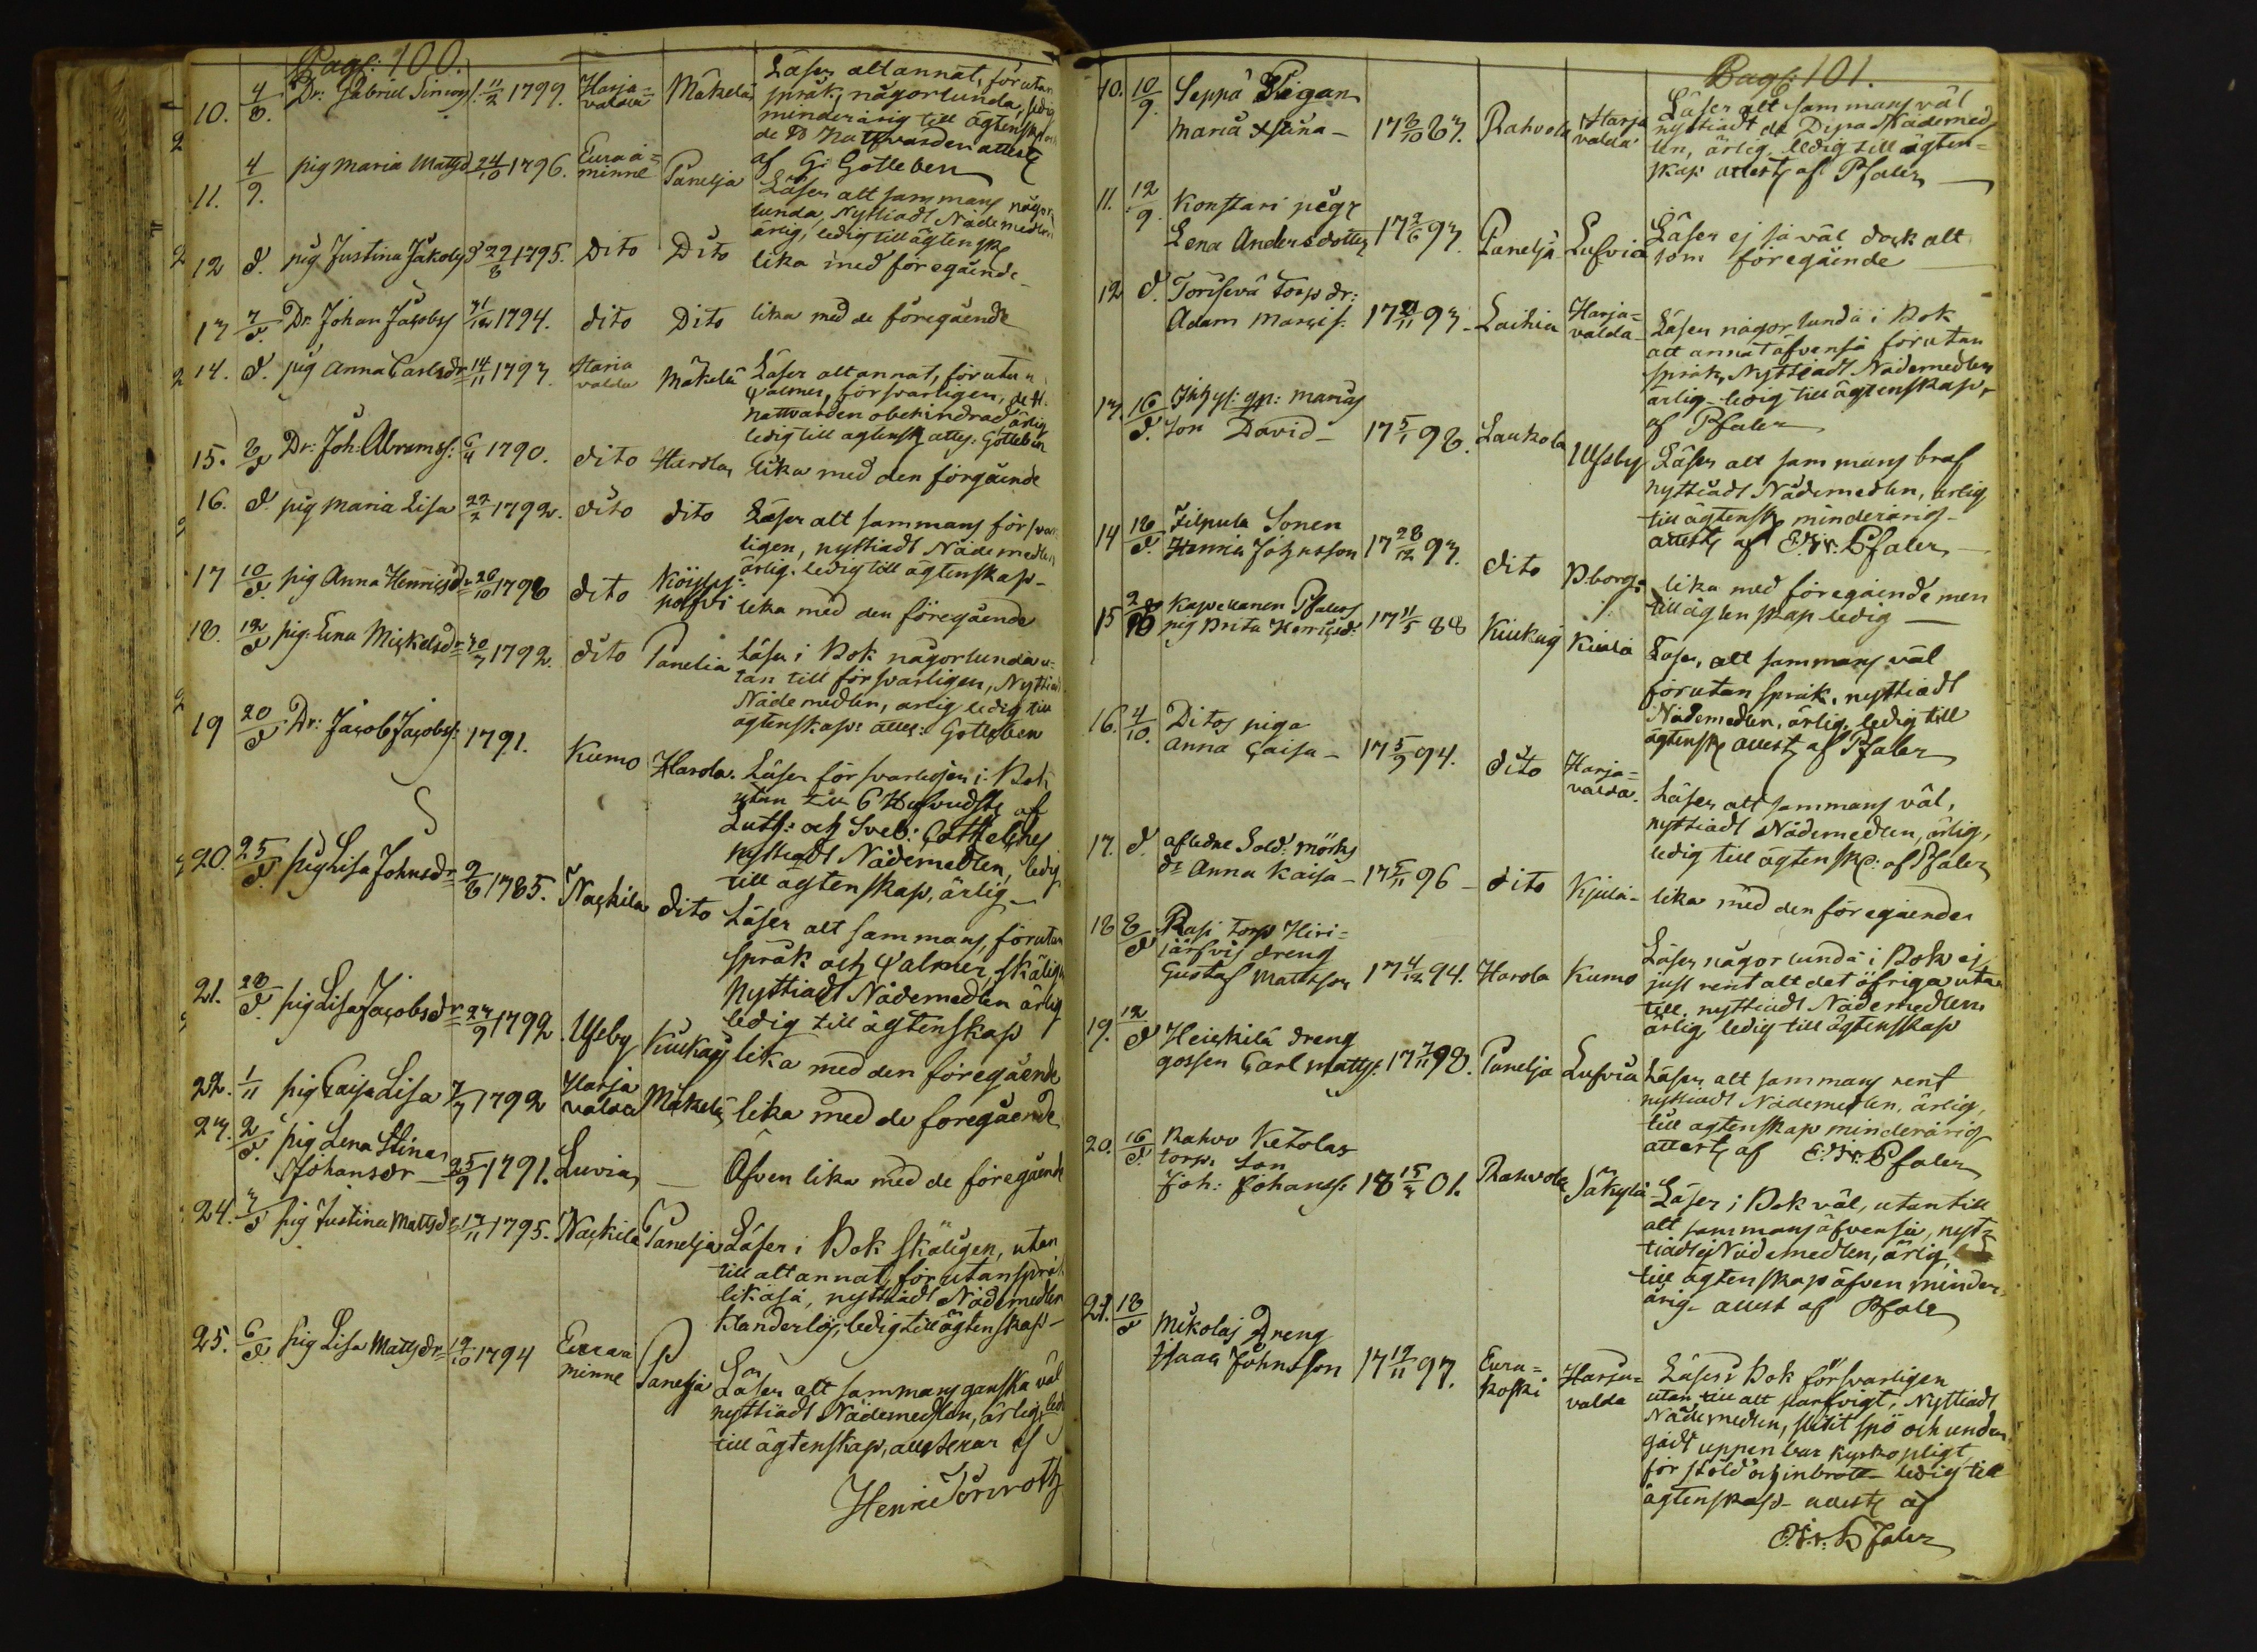 Pag: 100.
10. 4/8. Dr: Gabriel Simons: 11/2 1799. Harja=valda Mäkelä Läser alt annat, förutan
språk, någorlunda,
minderårig till ägtensk
Nattvarden attest
af G: Gotleben
11. 4/9. pig Maria Mattsd 24/10 1796. Euraå=minne Panelja Läser alt sammans någor
lunda, Nyttiadt Nådemedlen
ärlig, ledig till ägtensk
12 d. pig Justina Jakobsd 22/8 1795. Dito Dito lika med föregående
13 7/d. Dr. Johan Jacobss 31/12 1794. dito Dito lika med de föregående
14. d. pig Anna Carlsdr 14/11 1793. Harja valda Mäkelä Läser alt annat, förutan
Psalmer, försvarligen, de H.
nattvarden obehindrad, ärlig
ledig till ägtensk attes: Gotleben
15. 8/d Dr: Joh: Abrams: 6/4 1790. dito Harola lika med den förgående
16. d. pig Maria Lisa 22/2 1792. dito dito Läser alt sammans försvar
ligen, nyttiadt Nådemedlen
ärlig. ledig till ägtenskap-
17 10/d. pig Anna Henricsdr 20/10 1798 dito lika med den föregående
18. 12/d pig. Lena Mickelsdr 30/7 1792. dito Panelia Läser i Bok någorlunda u
tan till försvarligen, Nyttiad
Nådemedlen, ärlig ledig till
ägtenskap: attes: Gotleben
19 20/d Dr: Jacob Jacobss: 1791. Kumo Harola. Läser försvarligen i Bok
utan till 6 Hufvudst af
Luth: och Sveb: Catheches
Nyttiadt Nådemedlen, ledig
till ägtenskap, ärlig
20. 25/d. pig Lisa Johnsdr 9/8 1785. Nackila dito Läser alt sammans, förutan
språk och Psalmer, skälign
Nyttiadt Nådemedlen ärlig
ledig till ägtenskap
21. 28/d. pig Lisa Jacobsdr 23/9 1792. Ulfsby Kiukais lika med den föregående
22. 1/11 pig Caisa Lisa 7/7 1792 Harja valda Mäkelä lika med de föregående
23. 2/d. pig Lena Stina
Johansdr 25/9 1791. Luvia — Äfven lika med de föregånde
24. 3/d pig Justina Mattsdr 13/11 1795. Nackila Panelja Läser i Bok skäligen, utan
till alt annat, förutan språk
likaså, nyttiadt Nådemedlen
klanderlös, ledig till ägtenskap-
25. 6/d. pig Lisa Mattsdr 19/10 1794 Euraå minne Panelja Läser alt sammans ganska väl
nyttiadt Nådemedlen, ärlig, led
till ägtenskap, attesterar af
Henric Törnroth
Pag: 101.
10. 10/9. Seppä Pigan
Maria Stina - 17 8/10 83. Rahvola Harja valda Läser alt sammans väl
nyttiadt de Dyra Nådemed
len, ärlig ledig till ägten=
skap attest af Pfaler
11. 12/9. Konstari
Lena Andersdotter 17 2/6 93. Panelja Lufvia Läser ej så väl dock alt
som föregående
12 d. Torisevä torp dr:
Adam 93. Laihia Harja=valda Läser någorlunda i Bok
alt annat äfvenså förutan
språk, Nyttiadt Nådemedlen
ärlig ledig till ägtenskap,
af Pfaler
13. 16/d.
Son David - 17 5/1 98. Laukola Ulfsby Läser alt sammans braf
nyttiadt Nådemedlen, ärlig
till ägtensk minderårig-
attest af Pfaler
14 18/d. Filpula Sonen
Henric Johnsson 17 28/12 93. dito B:borgs lika med föregående men
till ägtenskap ledig
15 Kapellanen Pfalers
pig Brita Henricsd: 17 11/5 88 Kiukais Kiulå Läser, alt sammans väl
förutan språk, nyttiadt
Nådemedlen, ärlig, ledig till
ägtensk attest af Pfaler
16. 4/10. Ditos piga
Anna Caisa - 17 5/9 94. dito Harja=valda. Läser alt sammans väl,
nyttiadt Nådemedlen, ärlig,
ledig till ägtensk: af Pfaler
17. d. afledne Sold: Mörks
dr Anna Kaisa - 17 5/11 96 - dito Kjulå - lika med den föregående
18 8/d Rasi torp Hiri=
järfvis dreng
Gustaf Mattsson 17 4/12 94. Harola Kumo Läser någorlunda i Bok ej
just rent alt det öfriga utan
till, nyttiadt Nådemedlen
ärlig, ledig till ägtenskap
19. 12/d Heickilä dreng
gossen Carl Matts: 17 7/11 98. Panelja Lufvia Läser, alt sammans rent
nyttiadt Nådemedlen, ärlig,
till ägtenskap minderårig
attest af Pfaler
20. 16/d. Rahvo Ketolas
torp: Son
Joh: Johanss: 18 15/3 01. Rahvola Säkylä Läser i Bok väl, utan till
alt sammans äfvenså, nyt=
tiadt ej Nådemedlen, ärlig,
till ägtenskap äfven minder
årig- attest af Pfaler
21. 18/d Mikolas Dreng
Isaac Johnsson 17 19/11 93. Eura=koski Harja=valda Läser i Bok försvarligen
utan till alt Nyttiadt
Nådemedlen, slitit spö och under
gådt uppenbar kyrkopligt
för stöld och inbrott - ledig till
ägtenskap - attest af
Pfaler